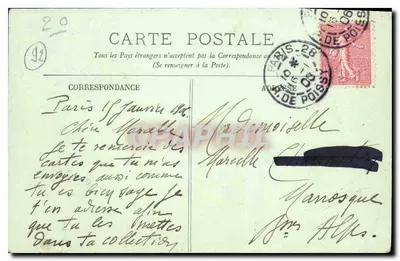 20
92
CARTE POSTALE
Tous les Pays étrangers n'acceptent pas la Correspondance
(Se renseigner à la Poste).
CORRESPONDANCE
PARIS-28
R. DE POISSY
06
R. DE POISSY
Paris 15 Janvier 06.
Chère Marcelle
Je te remercie des
cartes que tu m'as
envoyées aussi comme
tu es bien sage je
t'en adresse afin
que tu les mettes
dans ta collection
Mademoiselle
Marcelle
Manosque
Bses Alpes